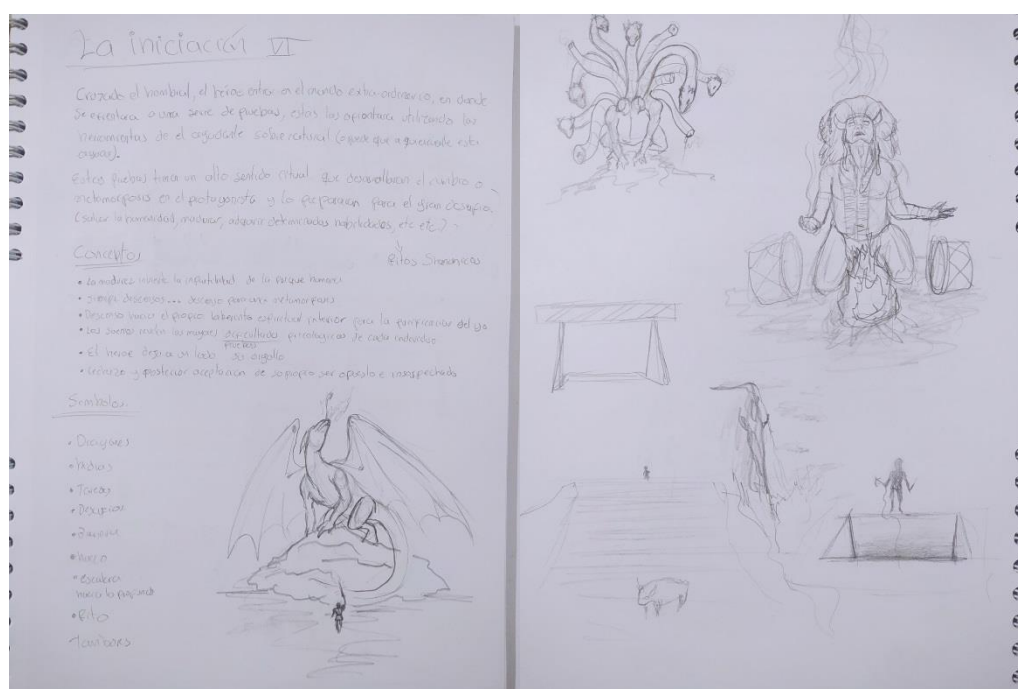 La iniciación VI
Cruzado el humbral, el heroe entra en el mundo extra-ordinario, en donde
se enfrentara a una serie de pruebas, estas las afrontara utilizando las
herramientas de el ayudante sobre natural
Estas pruebas tienen un alto sentido ritual que desarrollaran el cambio o
metamorfosis en el protagonista y lo preparan para el gran desafio.
(salvar la humanidad, madurar, adquirir determinadas habilidades, etc etc.)
Ritos Shamanicos
Conceptos
• La madurez la de la psique humana
• siempre descensos... descenso para una metamorfosis
• Descenso hacia el propio laberinto espiritual interior para la purificacion del yo
• Los sueños las mayores dificultades psicologicas de cada individuo
pruebas
• El heroe deja a un lado su orgullo
• rechazo y posterior aceptacion de su propio ser opuesto e insospechado
Simbolos
• Dragones
• hidras
• Tareas
• Desafios
• 
• 
• escalera
hacia lo profundo
• Rito
Tambores